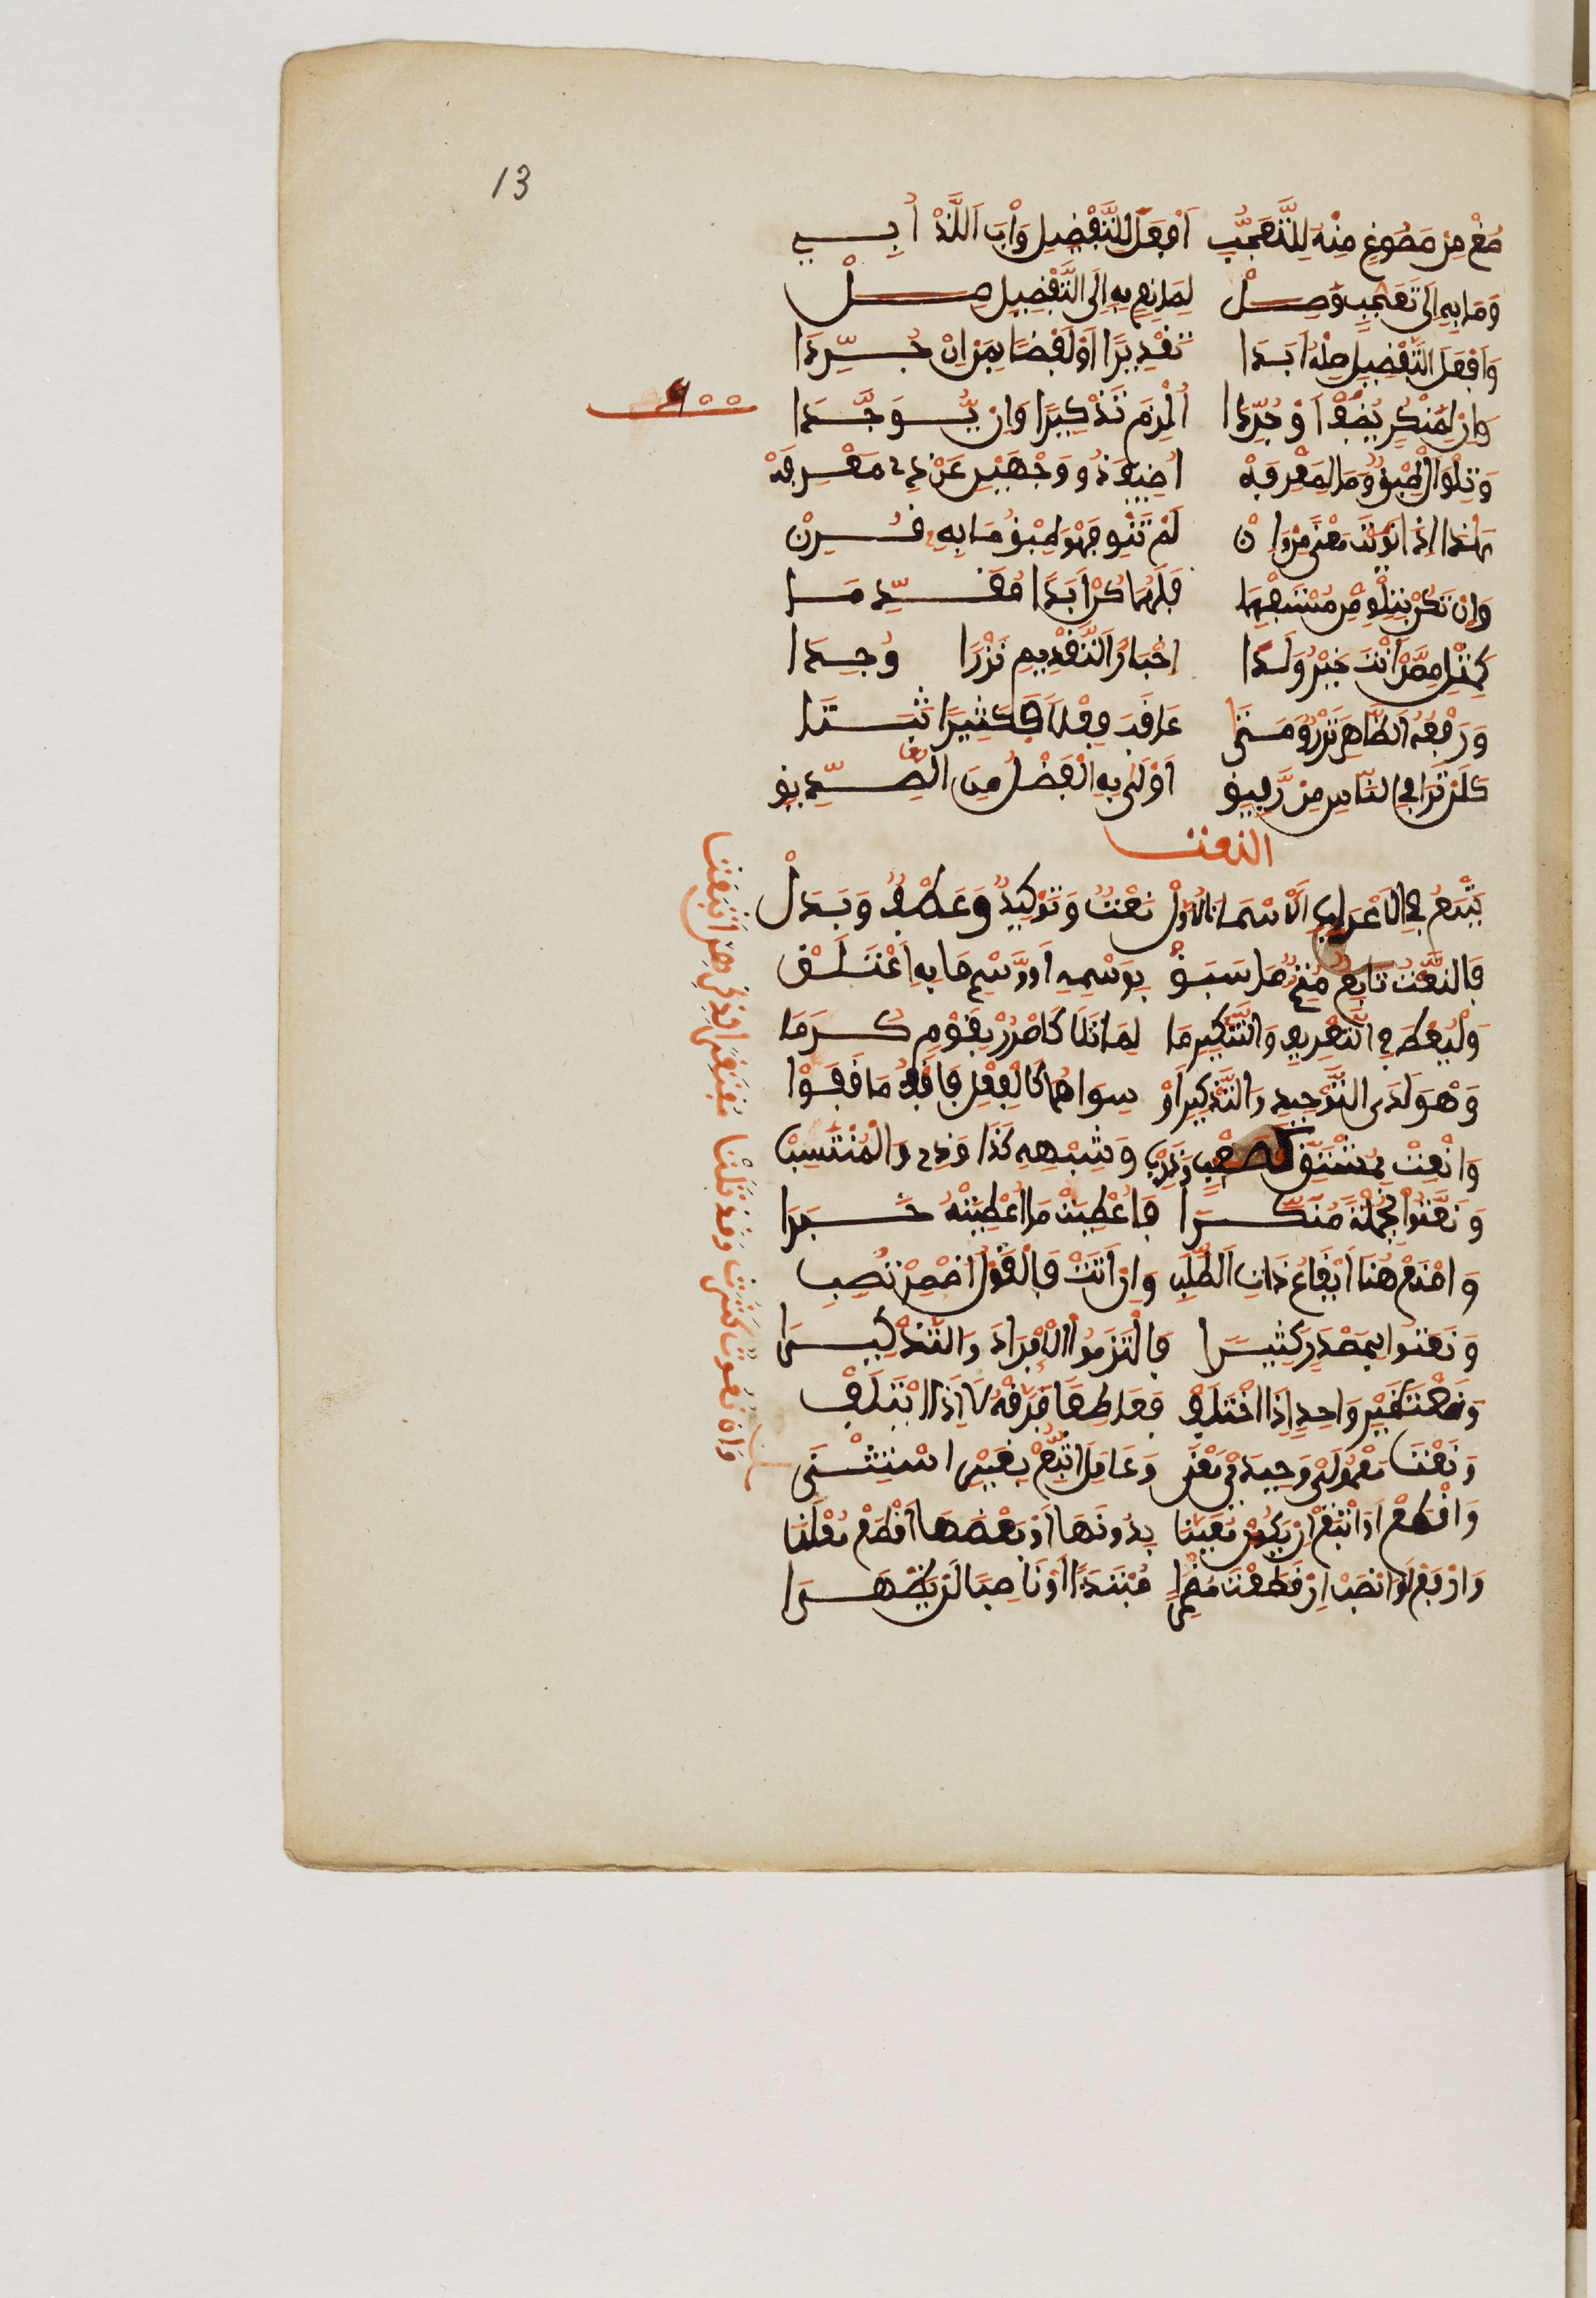 13
صُغْ مِنْ مَصُوغٍ مِنْهُ لِلتَّعَجُّبِ أَفْعَلَ لِلتَّفْضِيلِ وَأْبَ اللَّذْ أُبِي
وَمَا بِهِ إِلَى تَعَجُّبٍ وُصِلْ لِمَانِعٍ بِهِ إِلَى التَّفْضِيلِ صِلْ
وَأَفْعَلَ التَّفْضِيلِ صِلْهُ أَبَدَا تَقْدِيرًا أَوْ لَفْظًا بِمِنْ إِنْ جُرِّدَا
وَإِنْ لِمَنْكُورٍ يُضَفْ أَوْ جُرِّدَا أُلْزِمَ تَذْكِيرًا وَإِنْ يُّوَحَّدَا
وَتِلْوَ أَلْ طِبْقٌ وَمَا لِمَعْرِفَهْ أُضِيفَ ذُو وَجْهَيْنِ عَنْ ذِي مَعْرِفَهْ
هَذَا إِذَا نَوَيْتَ مَعْنَى مِنْ وَإِنْ لَمْ تَنْوِ فَهْوَ طِبْقُ مَا بِهِ قُرِنْ
وَإِنْ تَكُنْ بِتِلْوِ مِنْ مُسْتَفْهِمَا فَلَهُمَا كُنْ أَبَدًا مُقَدِّمَا
كَمِثْلِ مِمَّنْ أَنْتَ خَيْرٌ وَلَدَا إِخْبَارٌ التَّقْدِيمُ نَزْرًا وُجِدَا
وَرَفْعُهُ الظَّاهِرَ نَزْرٌ وَمَتَى عَاقَبَ فِعْلًا فَكَثِيرًا ثَبَتَا
كَلَنْ تَرَى فِي النَّاسِ مِنْ رَّفِيقِ أَوْلَى بِهِ الْفَضْلُ مِنَ الصِّدِّيقِ
النعت
يَتْبَعُ فِي الْإِعْرَابِ الْأَسْمَاءَ الْأُوَلْ نَعْتٌ وَتَوْكِيدٌ وَعَطْفٌ وَبَدَلْ
فَالنَّعْتُ تَابِعٌ مُتِمٌّ مَا سَبَقْ بِوَسْمِهِ أَوْ وَسْمِ مَا بِهِ اعْتَلَقْ
وَلْيُعْطَ فِي التَّعْرِيفِ وَالتَّنْكِيرِ مَا لِمَا تَلَا كَامْرُرْ بِقَوْمٍ كُرَمَا
وَهْوَ لَدَى التَّوْحِيدِ وَالتَّذْكِيرِ أَوْ سِوَاهُمَا كَالْفِعْلِ فَاقْفُ مَا قَفَوْا
وَانْعَتْ بِمُشْتَقٍّ كَصَعْبٍ وَذَرِبْ وَشِبْهِهِ كَذَا وَذِي وَالْمُنْتَسِبْ
وَنَعَتُوا بِجُمْلَةٍ مُنَكَّرَا فَأُعْطِيَتْ مَا أُعْطِيَتْهُ خَبَرَا
وَامْنَعْ هُنَا إِيقَاعَ ذَاتِ الطَّلَبِ وَإِنْ أَتَتْ فَالْقَوْلَ أَضْمِرْ تُصِبِ
وَنَعَتُوا بِمَصْدَرٍ كَثِيرَا فَالْتَزَمُوا الْإِفْرَادَ وَالتَّذْكِيرَا
وَنَعْتُ غَيْرِ وَاحِدٍ إِذَا اخْتَلَفْ فَعَاطِفًا فَرِّقْهُ لَا إِذَا ائْتَلَفْ
وَنَعْتَ مَعْمُولَيْ وَحِيدَيْ مَعْنَى وَعَامِلٍ أَتْبِعْ بِغَيْرِ اسْتِثْنَى
وَإِنْ نُعُوتٌ كَثُرَتْ وَقَدْ تَلَتْ مُفْتَقِرًا لِذِكْرِهِنَّ أُتْبِعَتْ
وَاقْطَعْ أَوِ اتْبِعْ إِنْ يَكُنْ مُعَيَّنَا بِدُونِهَا أَوْ بَعْضَهَا اقْطَعْ مُعْلِنَا
وَارْفَعْ أَوِ انْصِبْ إِنْ قَطَعْتَ مُضْمِرَا مُبْتَدَأً أَوْ نَاصِبًا لَنْ يَظْهَرَا